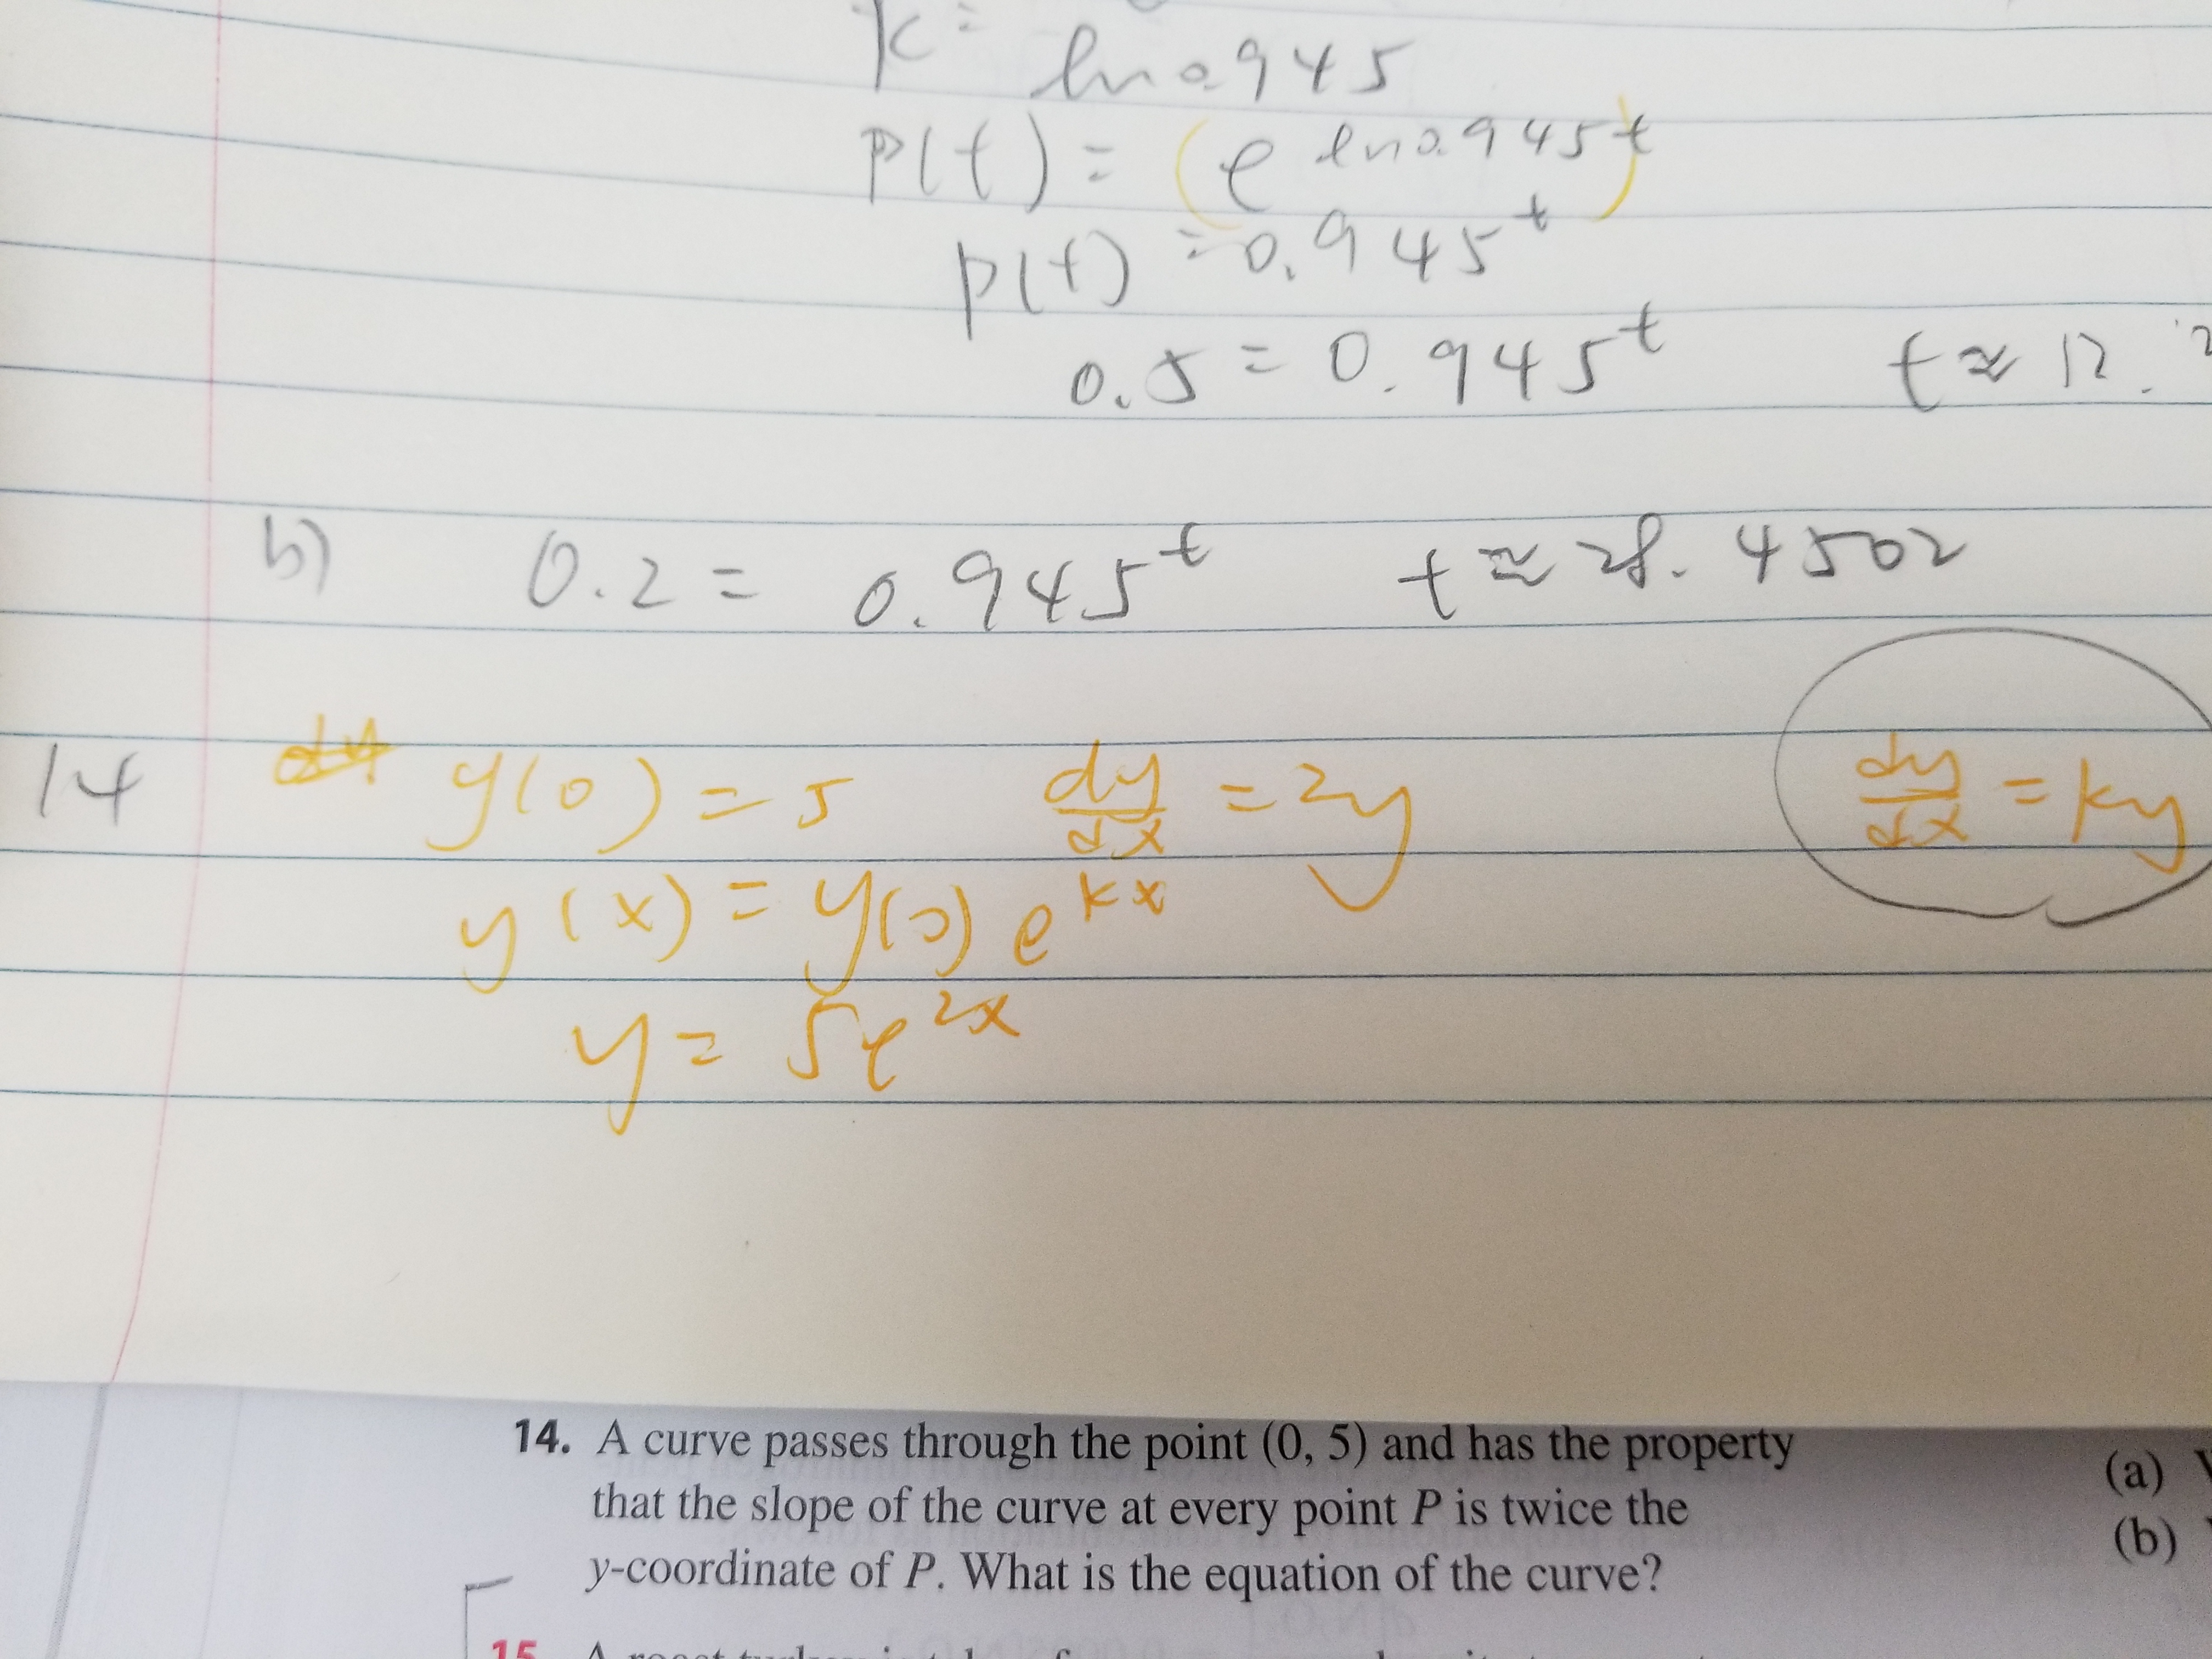 k = ln 0.945
P(t) = (e^ln0.945)^t
P(t) = 0.945^t
0.5 = 0.945^t t ≈ 12.
b) 0.2 = 0.945^t t ≈ 28.4502
14 y(0) = 5 dy/dx = 2y dy/dx = ky
y(x) = y(0) e^kx
y = 5e^2x
14. A curve passes through the point (0, 5) and has the property
that the slope of the curve at every point P is twice the
y-coordinate of P. What is the equation of the curve?
(a)
(b)
15